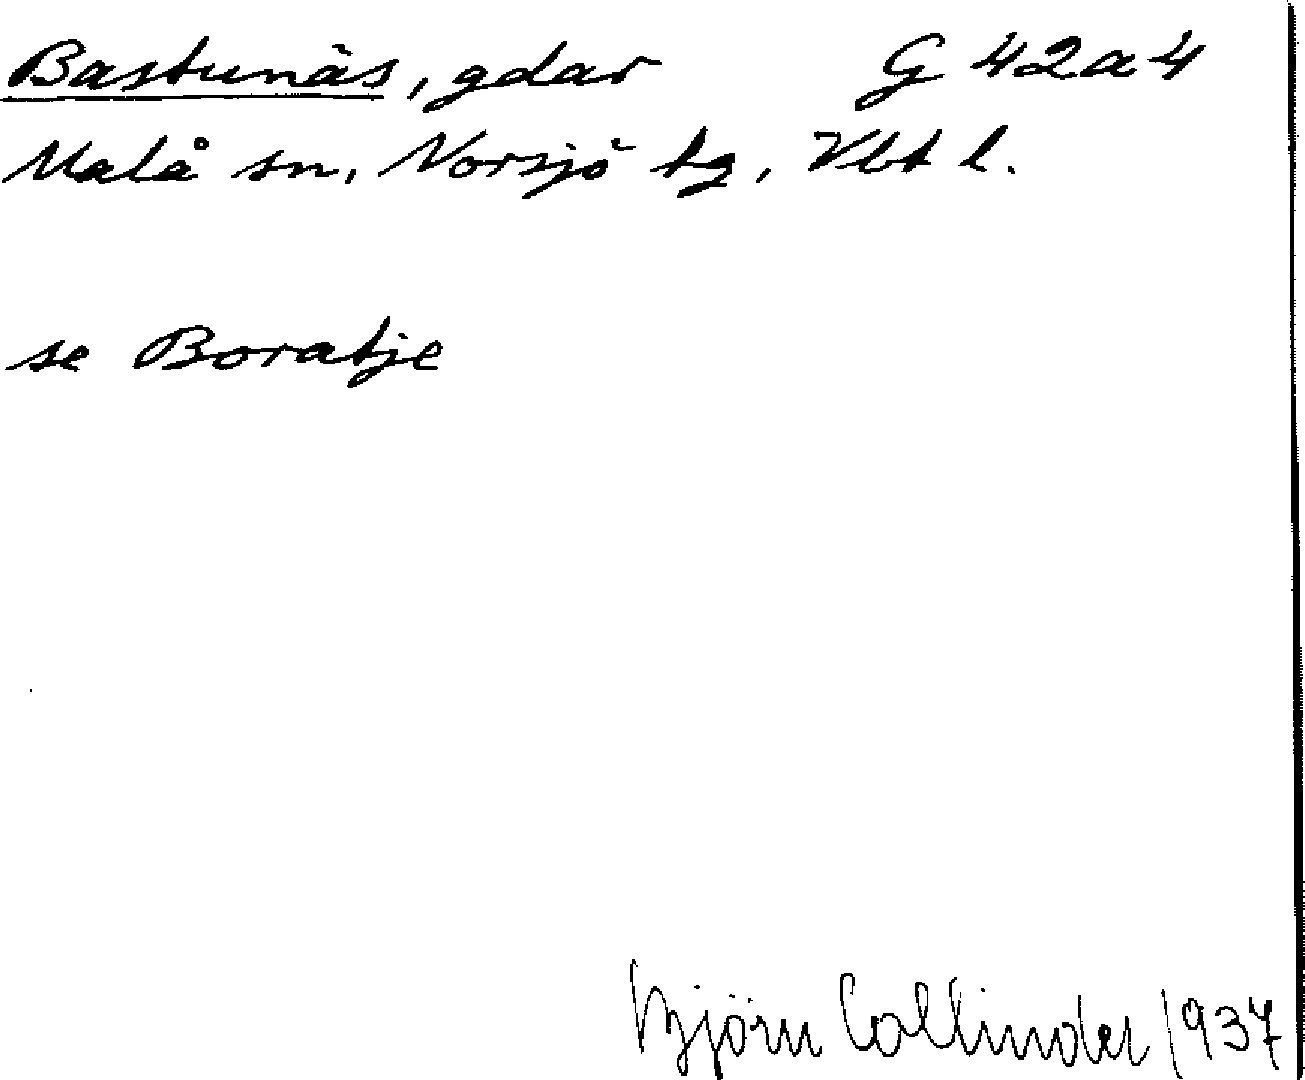 Bastunäs, gdar G 42a4
Malå sn, Norsjö tg, Vbt l.
se Boratje
Björn Collinder 1937